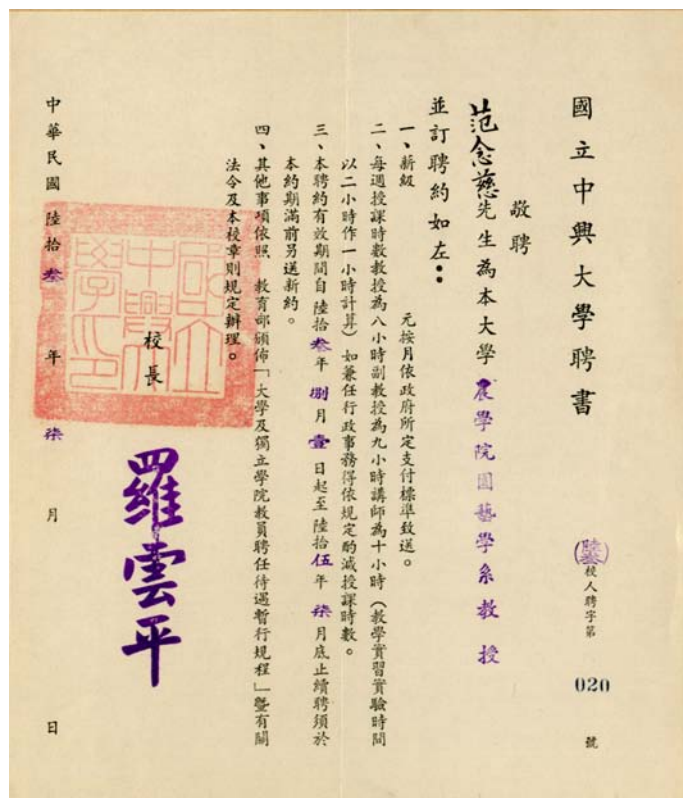 國立中興大學聘書
(陸叁)校人聘字第020號
敬聘
范念慈先生為本大學農學院園藝學系教授
並訂聘約如左：
一、薪級　元按月依政府所定支付標準致送。
二、每週授課時數教授為八小時副教授為九小時講師為十小時（教學實習實驗時間
以二小時作一小時計算）如兼任行政事務得依規定酌減授課時數。
三、本聘約有效期間自陸拾叁年捌月壹日起至陸拾伍年柒月底止續聘須於
本約期滿前另送新約。
四、其他事項依照 教育部頒佈「大學及獨立學院教員聘任待遇暫行規程」暨有關
法令及本校章則規定辦理。
校長 羅雲平
國立中興大學印
中華民國陸拾叁年柒月　日